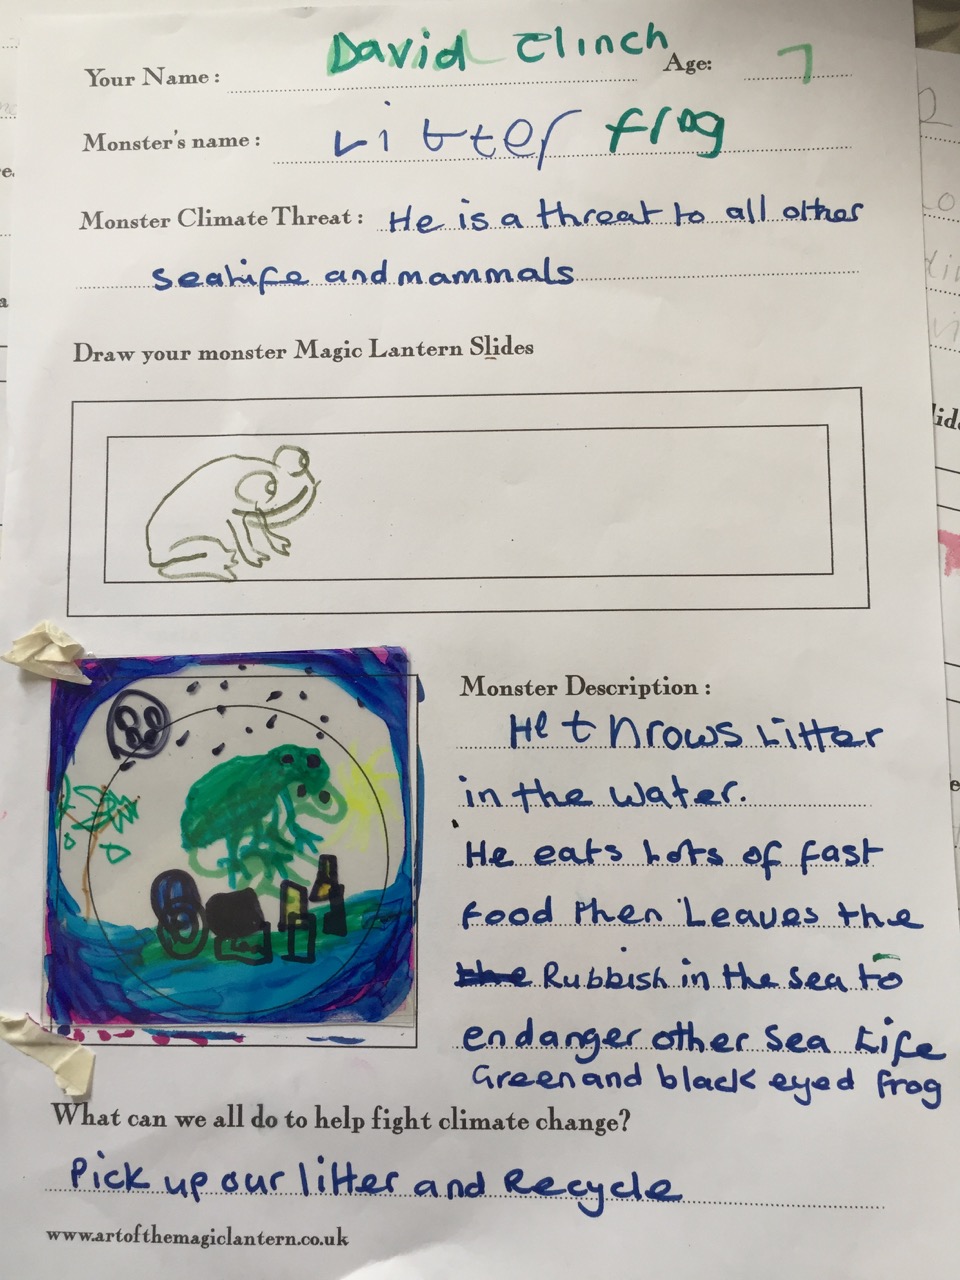 Your Name : David Clinch Age: 7
Monster's name : Litter frog
Monster Climate Threat : He is a threat to all other
sealife and mammals
Draw your monster Magic Lantern Slides
Monster Description :
He throws Litter
in the water.
He eats lots of fast
food then Leaves the
the Rubbish in the sea to
endanger other Sea Life
Green and black eyed frog
What can we all do to help fight climate change?
Pick up our litter and Recycle
www.artofthemagiclantern.co.uk